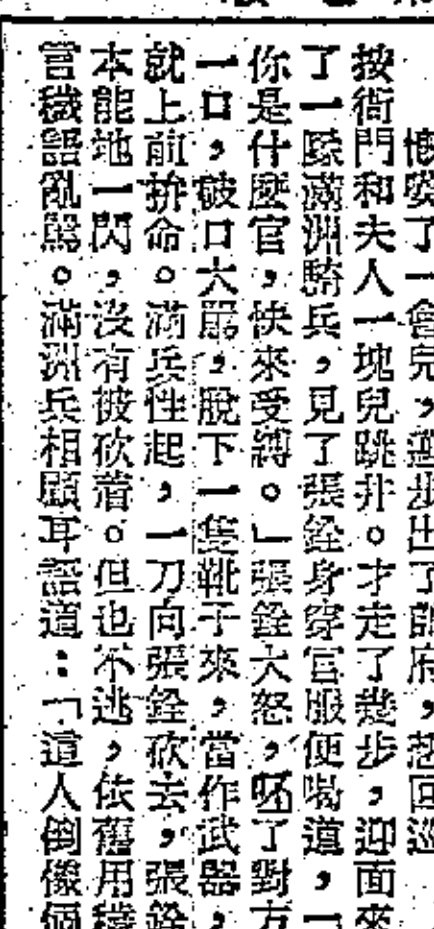 慨嘆了一會兒，邁步出了帥府，想回巡
按衙門和夫人一塊兒跳井。才走了幾步，迎面來
了一隊滿洲騎兵，見了張銓身穿官服便喝道，一
你是什麼官，快來受縛。」張銓大怒，呸了對方
一口，破口大罵，脫下一隻靴子來，當作武器，
就上前拚命。滿兵性起，一刀向張銓砍去，張銓
本能地一閃，沒有被砍着。但也不逃，依舊用穢
言穢語亂罵。滿洲兵相顧耳語道：「這人倒像個